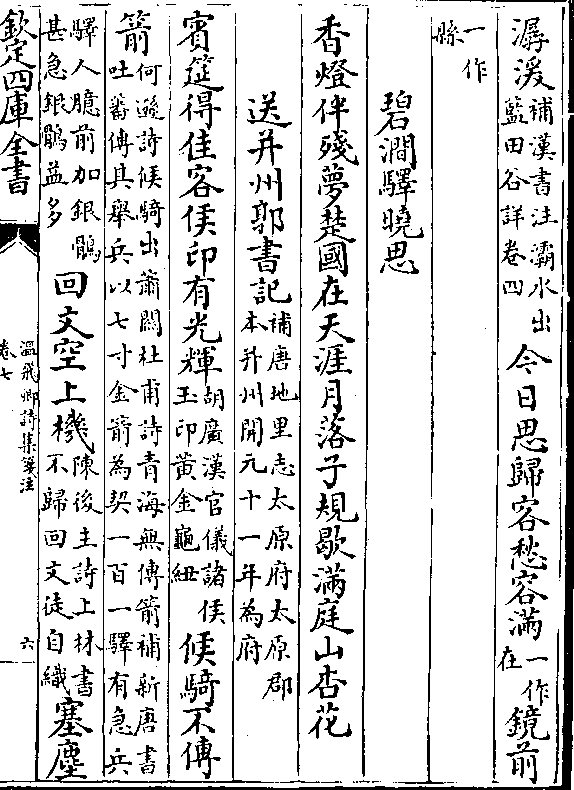 潺湲補漢書注灞水出藍田谷詳卷四今日思歸客愁容滿一作在鏡前
一作縣
碧澗驛曉思
香燈伴殘夢楚國在天涯月落子規歇滿庭山杏花
送并州郭書記補唐地里志太原府太原郡本并州開元十一年為府
賓筵得佳客侯印有光輝胡廣漢官儀諸侯玉印黄金龜紐候騎不傳
箭何遜詩候騎出蕭關杜甫詩青海無傳箭補新唐書吐蕃傳其舉兵以七寸金箭為契一百一驛有急兵
驛人臆前加銀鶻甚急銀鶻益多回文空上機陳後主詩上林書不歸回文徒自織塞塵
欽定四庫全書
溫飛卿詩集箋注
卷七
六